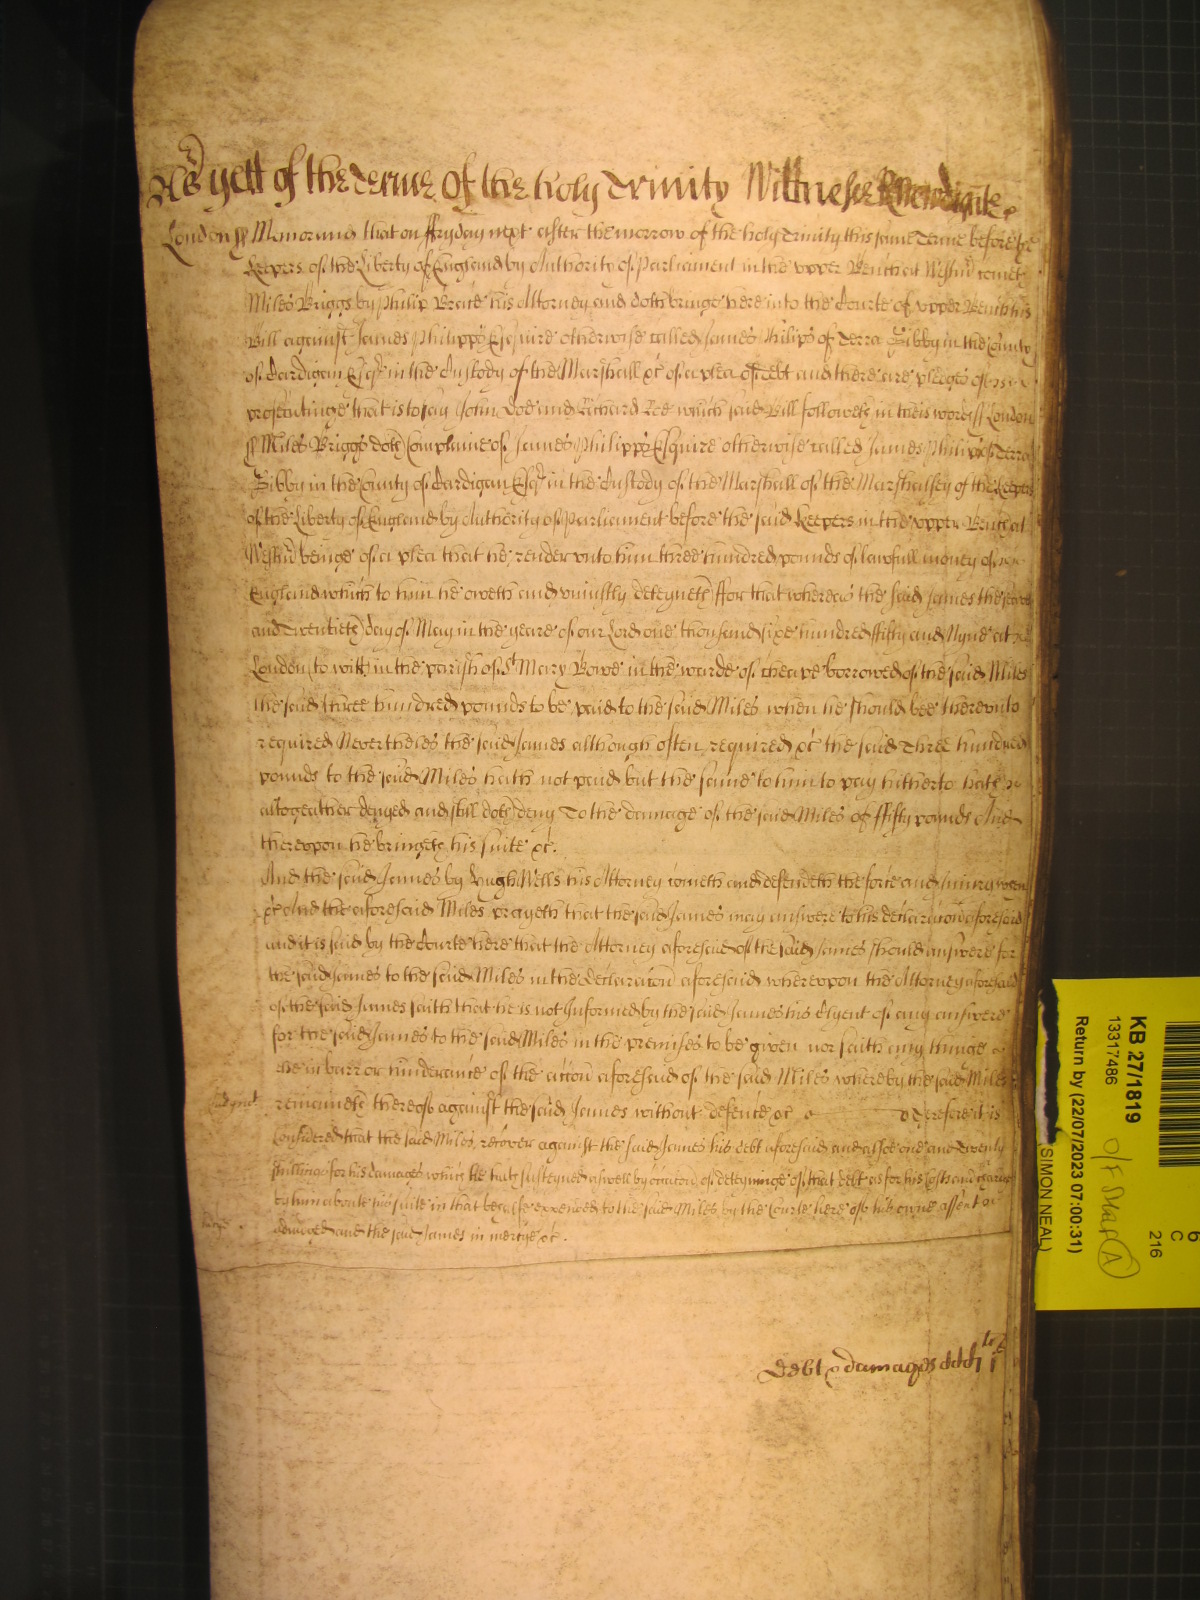 As yett of the Terme Of the holy Trinity Wittnesse R Newdigate
London ss Memorand that on ffryday next after the morrow of the holy Trinity this same Terme before the
Keepers of the Liberty of England by Authority of Parliament in the upper Bench at Westm cometh
Miles Briggs by Philip his Attorney and doth bringe here into the Courte of upper Bench his
Bill against James Philipps Esquire otherwise called James Philips of Terra Sibby in the County
of Cardigan Esqr in the Custody of the Marshall &c of a plea of Debt and there are pledges of
prosecutinge that is to say John Doe and Richard Roe which said Bill followeth in theis words ss London
ss Miles Briggs doth Complaine of James Philipps Esquire otherwise called James Philips of Terra
Sibby in the County of Cardigan Esqr in the Custody of the Marshall of the Marshalsey of the Keepers
of the Liberty of England by Authority of Parliament before the said Keepers in the upper Bench at
Westm beinge of a plea that he render vnto him three hundred pounds of lawfull money of
England which to him he oweth and vniustly deteyneth ffor that whereas the said James the
and Twentieth day of May in the yeare of our Lord one thousand sixe hundred ffifty and Nyne at
London to witt in the parish of St Mary Bowe in the warde of Cheape borrowed of the said Miles
the said three hundred pounds to be paid to the said Miles when he should bee therevnto
required Neverthelesse the said James although often required &c the said Three hundred
pounds to the said Miles hath not paid but the same to him to pay hitherto hath
altogeather denyed and still doth deny To the damage of the said Miles of ffifty pounds And
therevpon he bringeth his suite &c.
And the said James by Hugh Wells his Attorney cometh and defendeth the force and iniury when
&c And the aforesaid Miles prayeth that the said James may answere to his declaracon aforesaid
and it is said by the Courte here that the Attorney aforesaid of the said James should answere for
the said James to the said Miles in the declaracon aforesaid wherevpon the Attorney aforesaid
of the said James saith that he is not Informed by the said James his Clyent of any answere
for the said James to the said Miles in the premises to be given nor saith any thinge
in barr or hinderance of the accon aforesaid of the said Miles whereby the said Miles
remaineth thereof against the said James without defence &c Therefore it is
Considered that the said Miles recover against the said James his debt aforesaid and alsoe one and Twenty
shillings for his damages which he hath susteyned aswell by occacon of deteyninge of that debt as for his Costs and charges
by him aboute his suite in that behalfe expended to the said Miles by the Courte here of his owne assent
adiudged and the said James in mercye &c.
Debt & damages
KB 27/1819
13317486
Return by (22/07/2023 07:00:31)
(SIMON NEAL)
6
C
216
O/F
A